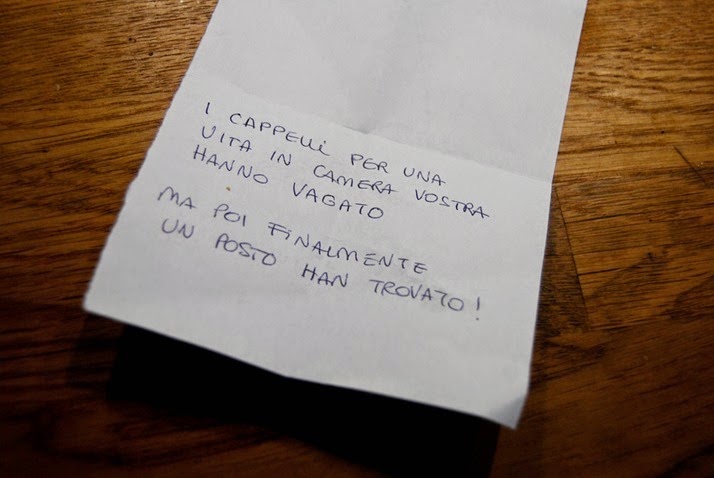 I CAPPELLI PER UNA
VITA IN CAMERA VOSTRA
HANNO VAGATO
MA POI FINALMENTE
UN POSTO HAN TROVATO!